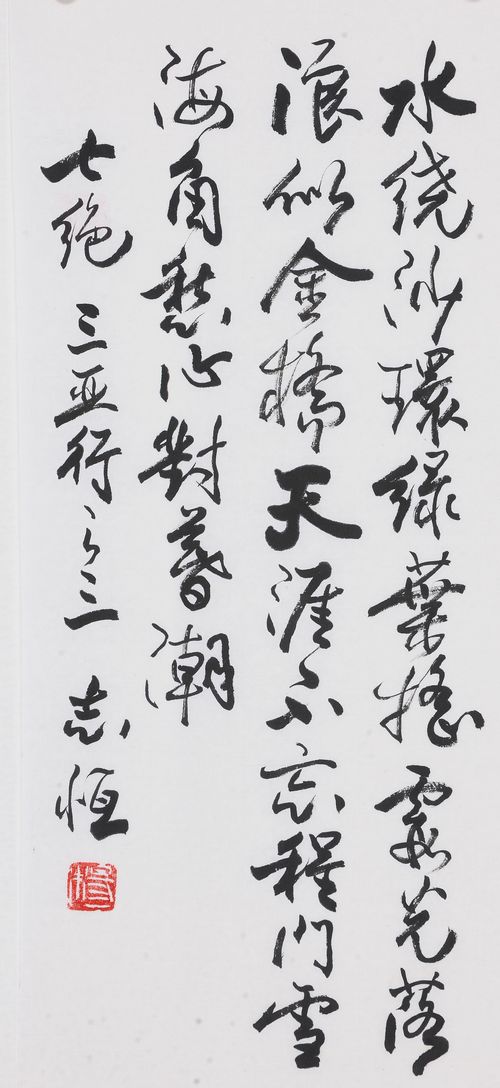 水绕沙環绿葉摇霞光落
浪似金橋天涯不忘程门雪
海角愁心對暮潮
七绝 三亚行之三 志恒